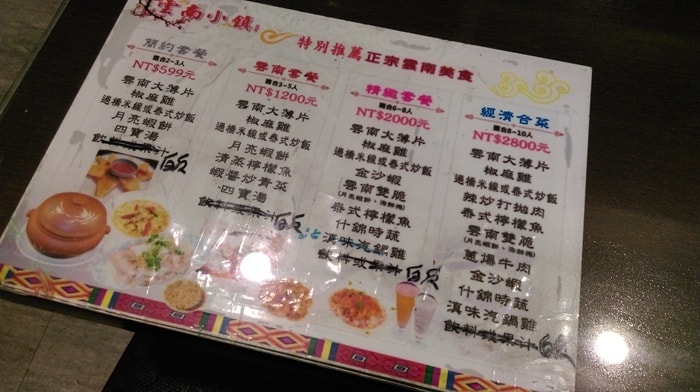 雲南小鎮
特別推薦正宗雲南美食
簡約套餐
適合2-3人
NT$599元
雲南大薄片
椒麻雞
過橋米線或泰式炒飯
月亮蝦餅
四寶湯
飲料或果汁
白飯
雲南套餐
適合3-5人
NT$1200元
雲南大薄片
椒麻雞
過橋米線或泰式炒飯
月亮蝦餅
清蒸檸檬魚
蝦醬炒青菜
四寶湯
飲料或果汁
白飯
精緻套餐
適合6-8人
NT$2000元
雲南大薄片
椒麻雞
過橋米線或泰式炒飯
金沙蝦
雲南雙脆
(月亮蝦餅、海鮮捲)
泰式檸檬魚
什錦時蔬
滇味汽鍋雞
飲料或果汁
白飯
經濟合菜
適合8-10人
NT$2800元
雲南大薄片
椒麻雞
過橋米線或泰式炒飯
辣炒打拋肉
泰式檸檬魚
雲南雙脆
(月亮蝦餅、海鮮捲)
蔥爆牛肉
金沙蝦
什錦時蔬
滇味汽鍋雞
飲料或果汁
白飯